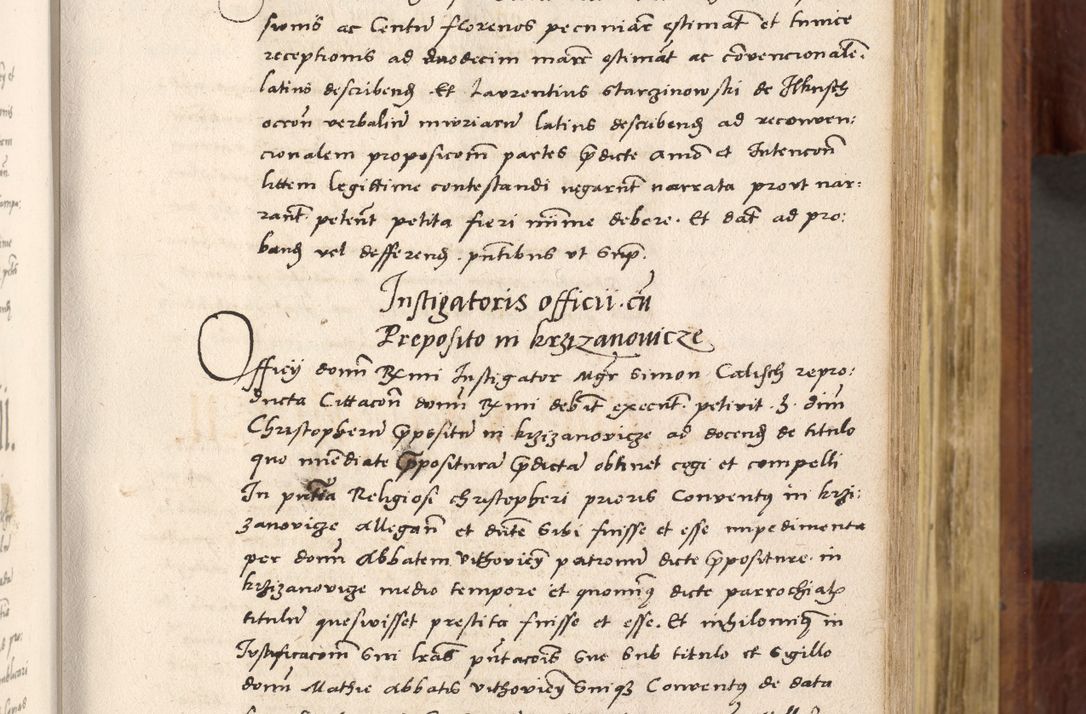 sionis ac Centu florenos pecuniar estimat et tunice
receptionis ad duodecim marc estimat ac convencionale
latius describend Et Laurentius Starzinowski de Ilkusch
occon verbaliu iniuriaru latius describend ad reconven:
cionalem proposicom partes predicte Animo et Intencon
littem legittime contestandi negarunt narrata prout nar:
rant petent petita fieri minime debere. Et dat ad pro:
band vel defferend. pntibus ut supra.
Instigatoris officii. cu
Preposito in krzizanowicze
Officij domi Rmi Instigator Mgr Simon Calisch repro:
ducta Cittacon domi Rmi debit execut. petivit. h. dnm
Christopheru prepositu in krzizanovicze ad docend de titulo
quo mediate prepositura predicta obtinet cogi et compelli
In pntia Religiosi christopheri prioris Conventus in krzi:
zanovicze allegan et dicente Sibi fuisse et esse impedimenta
per domi Abbatem vithovien patronu dicte prepositure in
krzizanovicze medio tempore et quominus dicte parrochialis
titulu quesivisset prestita fuisse et esse. Et nihilominus in
Justificacom Sui lras pntacois sue Sub titulo et Sigillo
domi Mathie Abbatis vithovien Suique Conventus de data